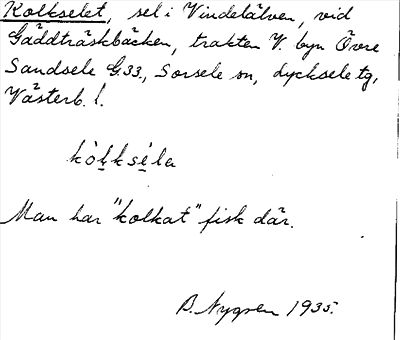 Kolkselet, sel i Vindelälven, vid
Gäddträskbäcken, trakten V. byn Övre
Sandsele G.33, Sorsele sn, Lycksele tg,
Västerb. l.
kòḷkséla
Man har "kolkat" fisk där.
B. Nygren 1935.